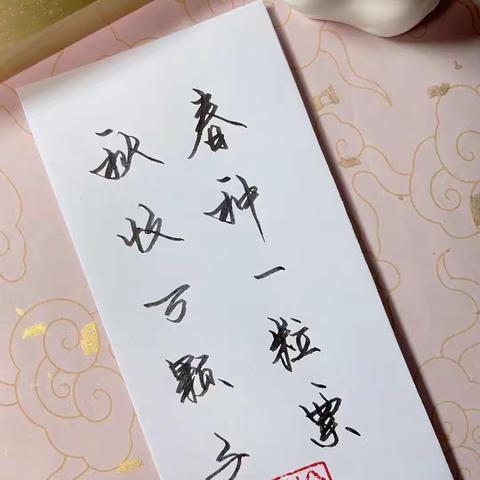 春种一粒粟
秋收万颗子